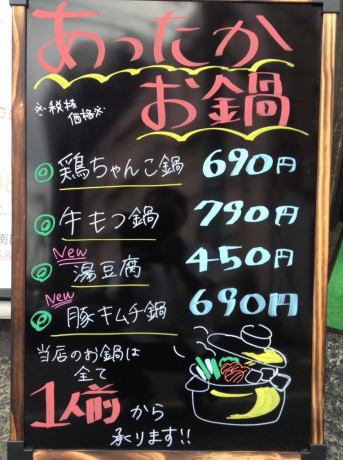 あったか
お鍋
※税抜
価格※
鶏ちゃんこ鍋 690円
牛もつ鍋 790円
New
湯豆腐 450円
New
豚キムチ鍋 690円
当店のお鍋は
全て
1人前から
承ります!!